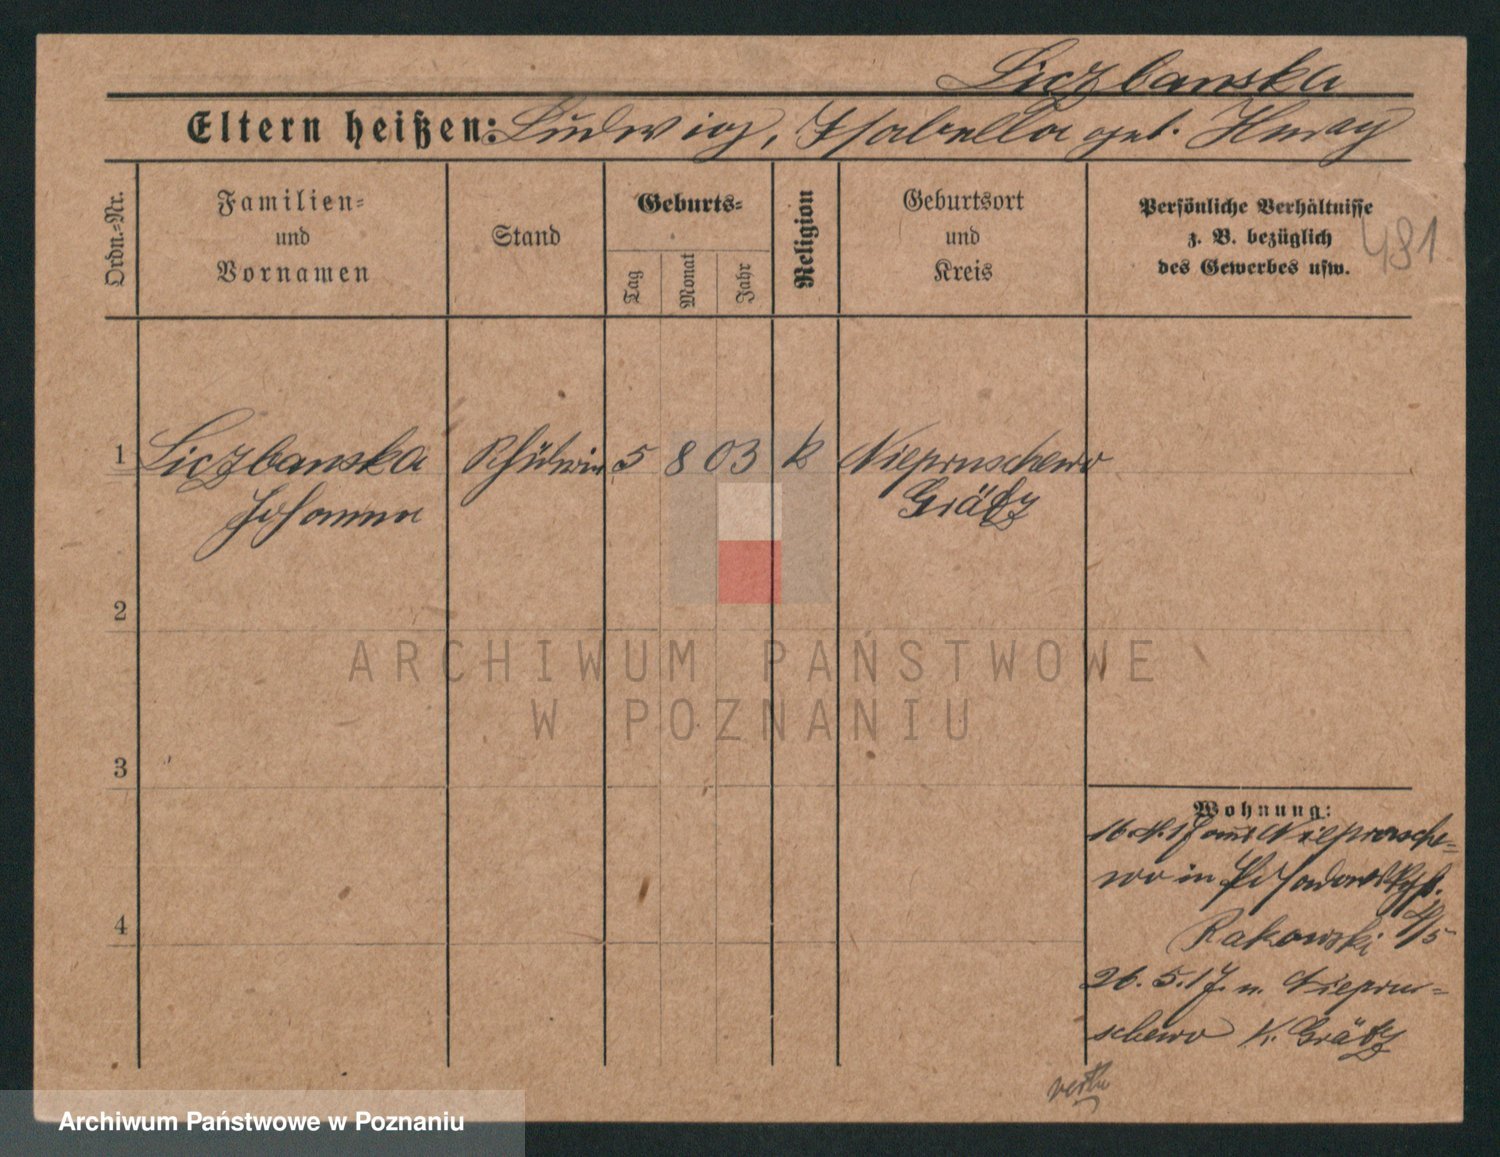 Liczbanska
Eltern heißen: Ludwig, Isabella geb.
Ordn.-Nr.
Familien-
und
Vornamen
Stand
Geburts-
Tag
Monat
Jahr
Religion
Geburtsort
und
Kreis
Persönliche Verhältnisse
z. B. bezüglich
des Gewerbes usw.
481
1 Liczbanska 5 8 03 k Niepruschewo
Johanna Grätz
2
ARCHIWUM PAŃSTWOWE
W POZNANIU
3
Wohnung:
16.4.17 aus Nieprusche-
wo in
4
Rakowski 4/5
26.5.17. n. Niepru-
schewo K. Grätz
Archiwum Państwowe w Poznaniu